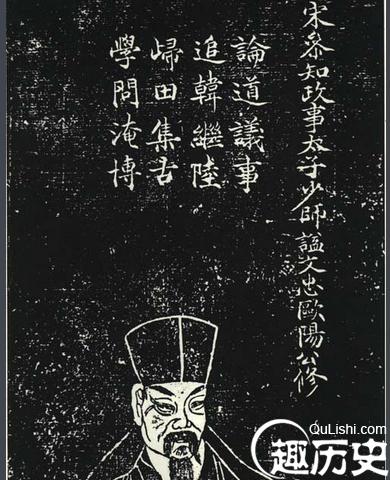 宋叅知政事太子少師謚文忠歐陽公修
論道議事
追韓繼陸
歸田集古
學問淹博
QuLishi.com
趣历史